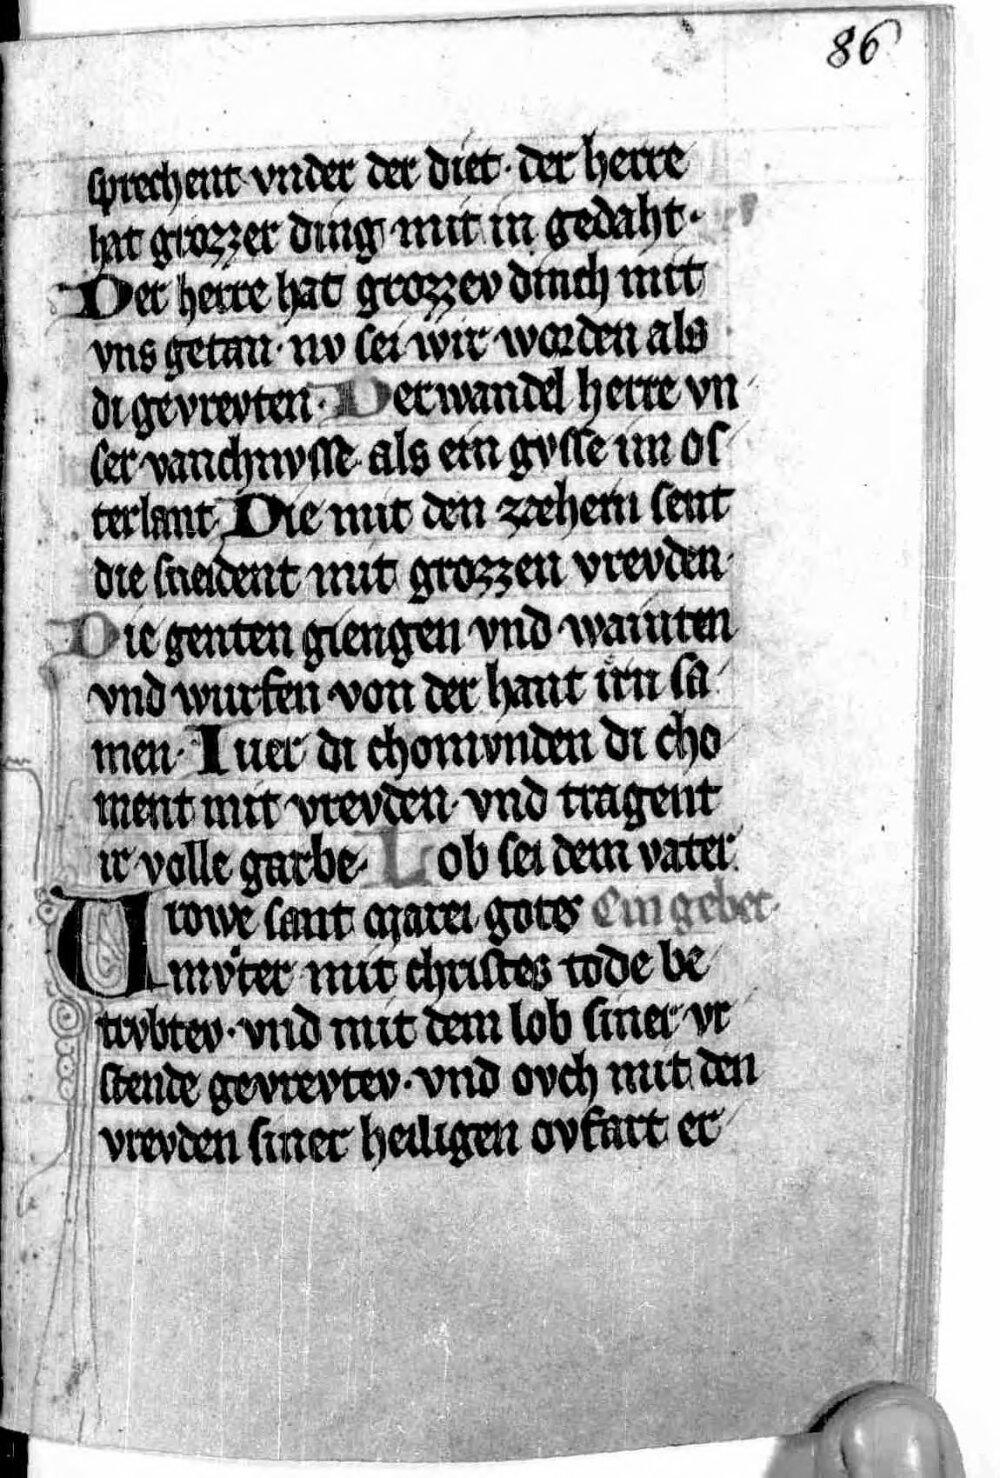 86
sprechent vnder der diet · der herre
hat grozzer ding mit in gedaht ·
Der herre hat grozzev dinch mit
vns getan · nv sei wir worden als
di gevrevten · Der wandel herre vn
ser vanchnvsse als ein gvsse im os
terlant Die mit den zæhern sent
die sneident mit grozzen vrevden ·
Die genten giengen vnd wainten
vnd wurfen von der hant irn sa
men · Iuer di chomvnden di cho
ment mit vrevden vnd tragent
ir volle garbe · Lob sei dem vater
Vrowe sant Marei gotes Ein gebet
mvͦter mit christes tode be
trvbtev · vnd mit dem lob siner vr
stende gevrevtev · vnd ovch mit den
vrevden siner heiligen ovfart er